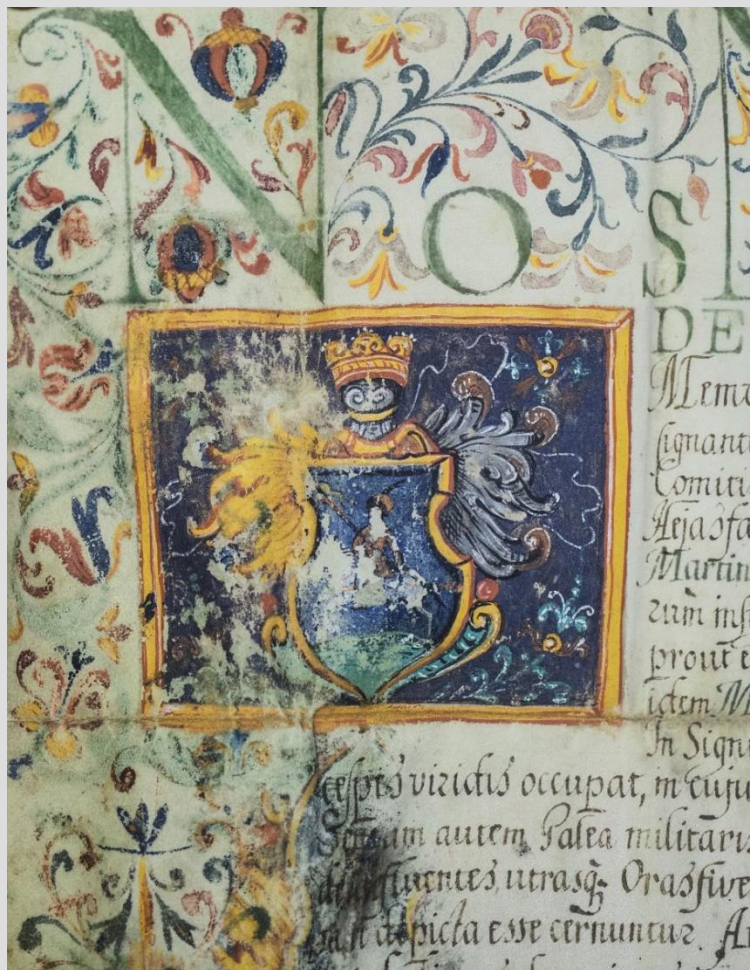 NOS
DE
Memo
signanti
Comiti
Martin
rum ins
prout e
idem M
In Sign
cespes viridis occupat, in cuju
Scutum autem Galea militaris
defluentes utrasq; Oras sive
depicta esse cernuntur. An